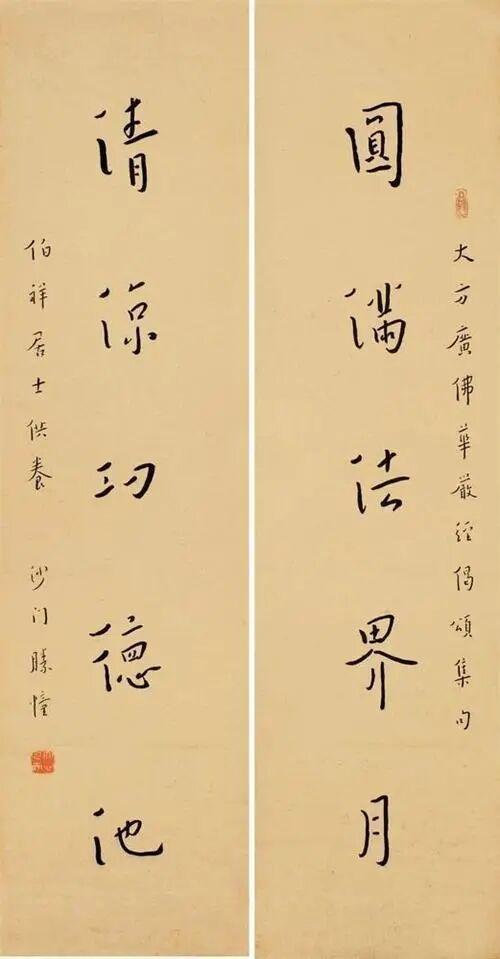 大方廣佛華嚴經偈頌集句
圓滿法界月
清涼功德池
伯祥居士供養 沙门勝幢